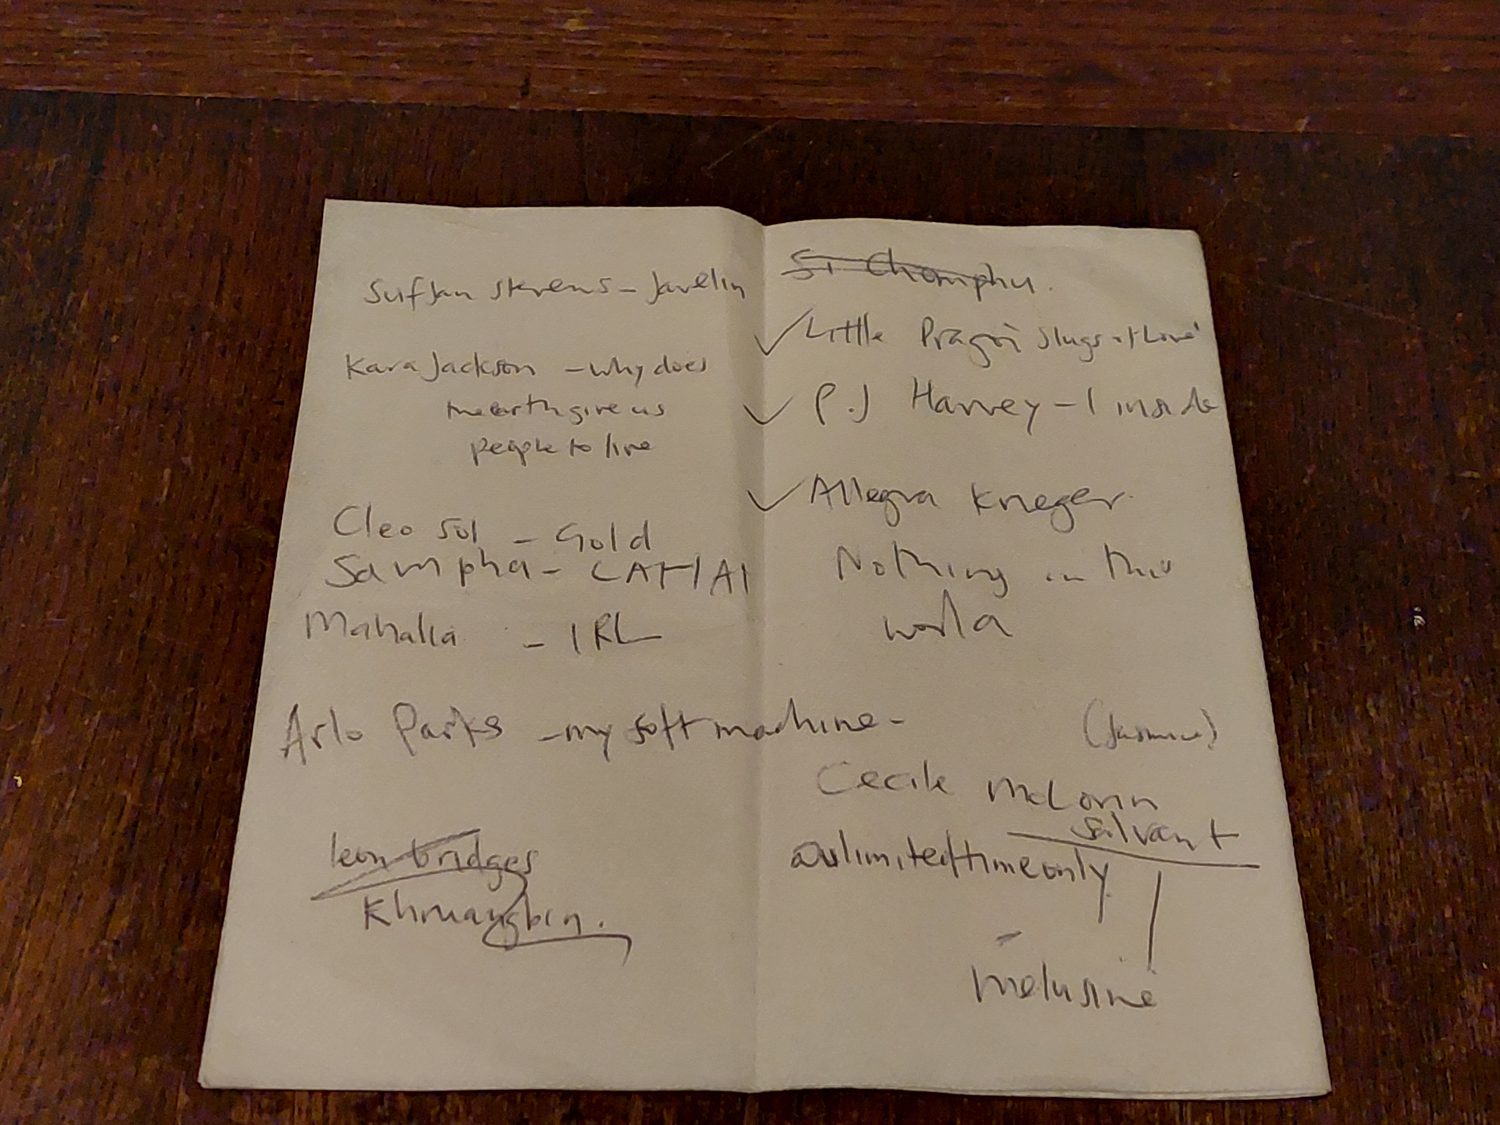 Sufjan Stevens - Javelin
Kara Jackson - why does
the earth give us
people to live
Cleo Sol - Gold
Sampha - LAHAI
Mahalia - IRL
Arlo Parks - my soft machine -
leon bridges
Khruangbin.
Si Chomphu.
Little Dragon Slugs of Love'
P.J Harvey - I inside
Allegra Krieger.
Nothing in this
world
Cecile McLorin
Salvant
melusine